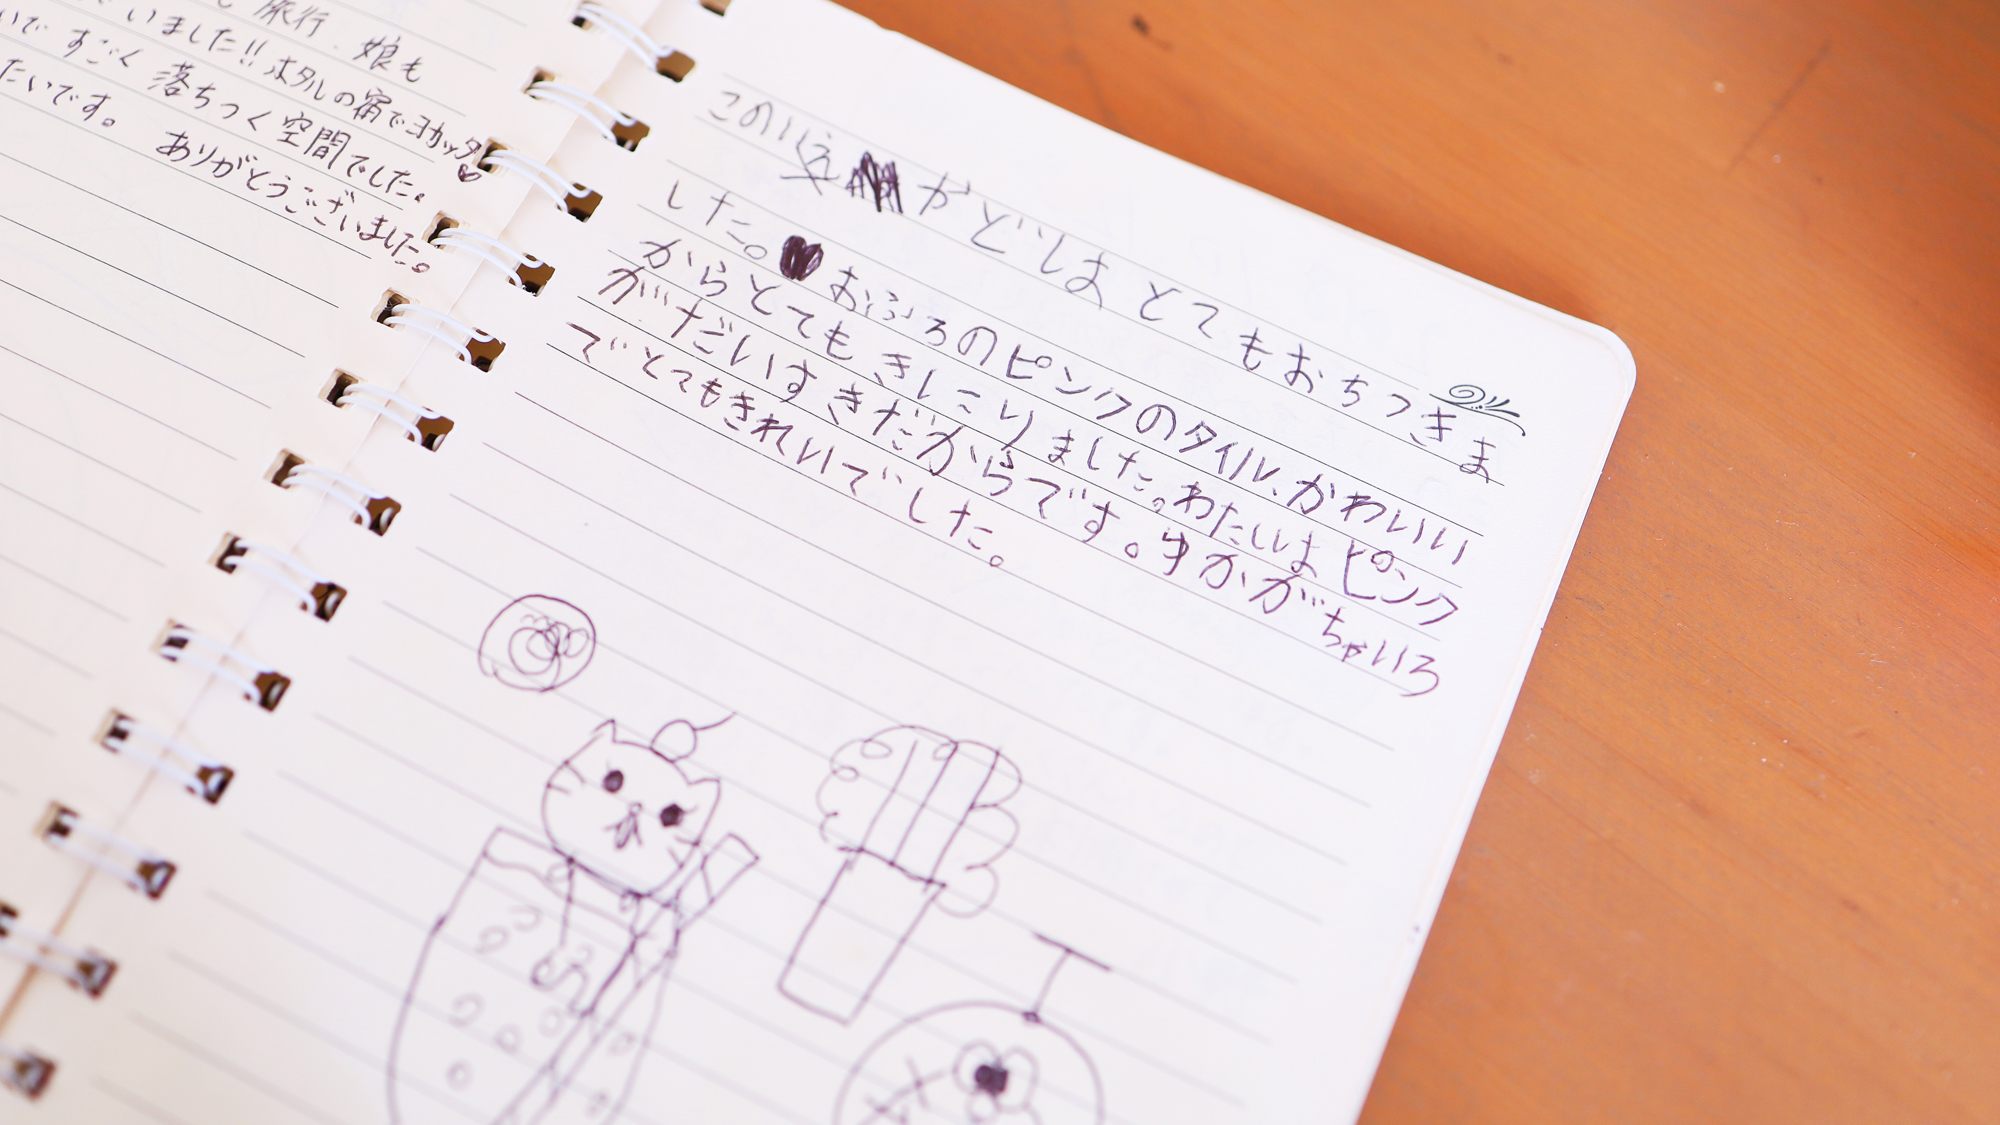 旅行 娘も
いました!! ホタルの宿でヨカッタ♡
いで すごく 落ちつく 空間でした。
たいです。 ありがとうございました。
この がどしま とてもおちつきま
した。♥おふろのピンクのタイル、かわいい
からとても きにいりました。わたしはピンク
がだいすきだからです。ゆかがちゃいろ
でとてもきれいでした。